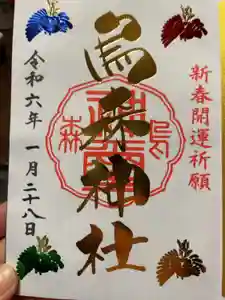 新春開運祈願
烏森神社
令和六年 一月二十八日
烏森